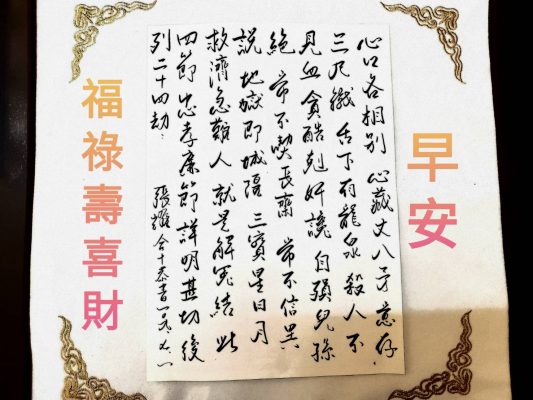 早安
心口各相別 心藏丈八矛 意存
三尺鐵 舌下有龍泉 殺人不
見血 貪酷剋奸讒 自損兒孫
絕 常不喫長齋 常不信異
說 地獄即城隍 三寶星日月
救濟急難人 就是解冤結 此
四節忠孝廉節詳明甚切後
列二十四劫 張
福祿壽喜財